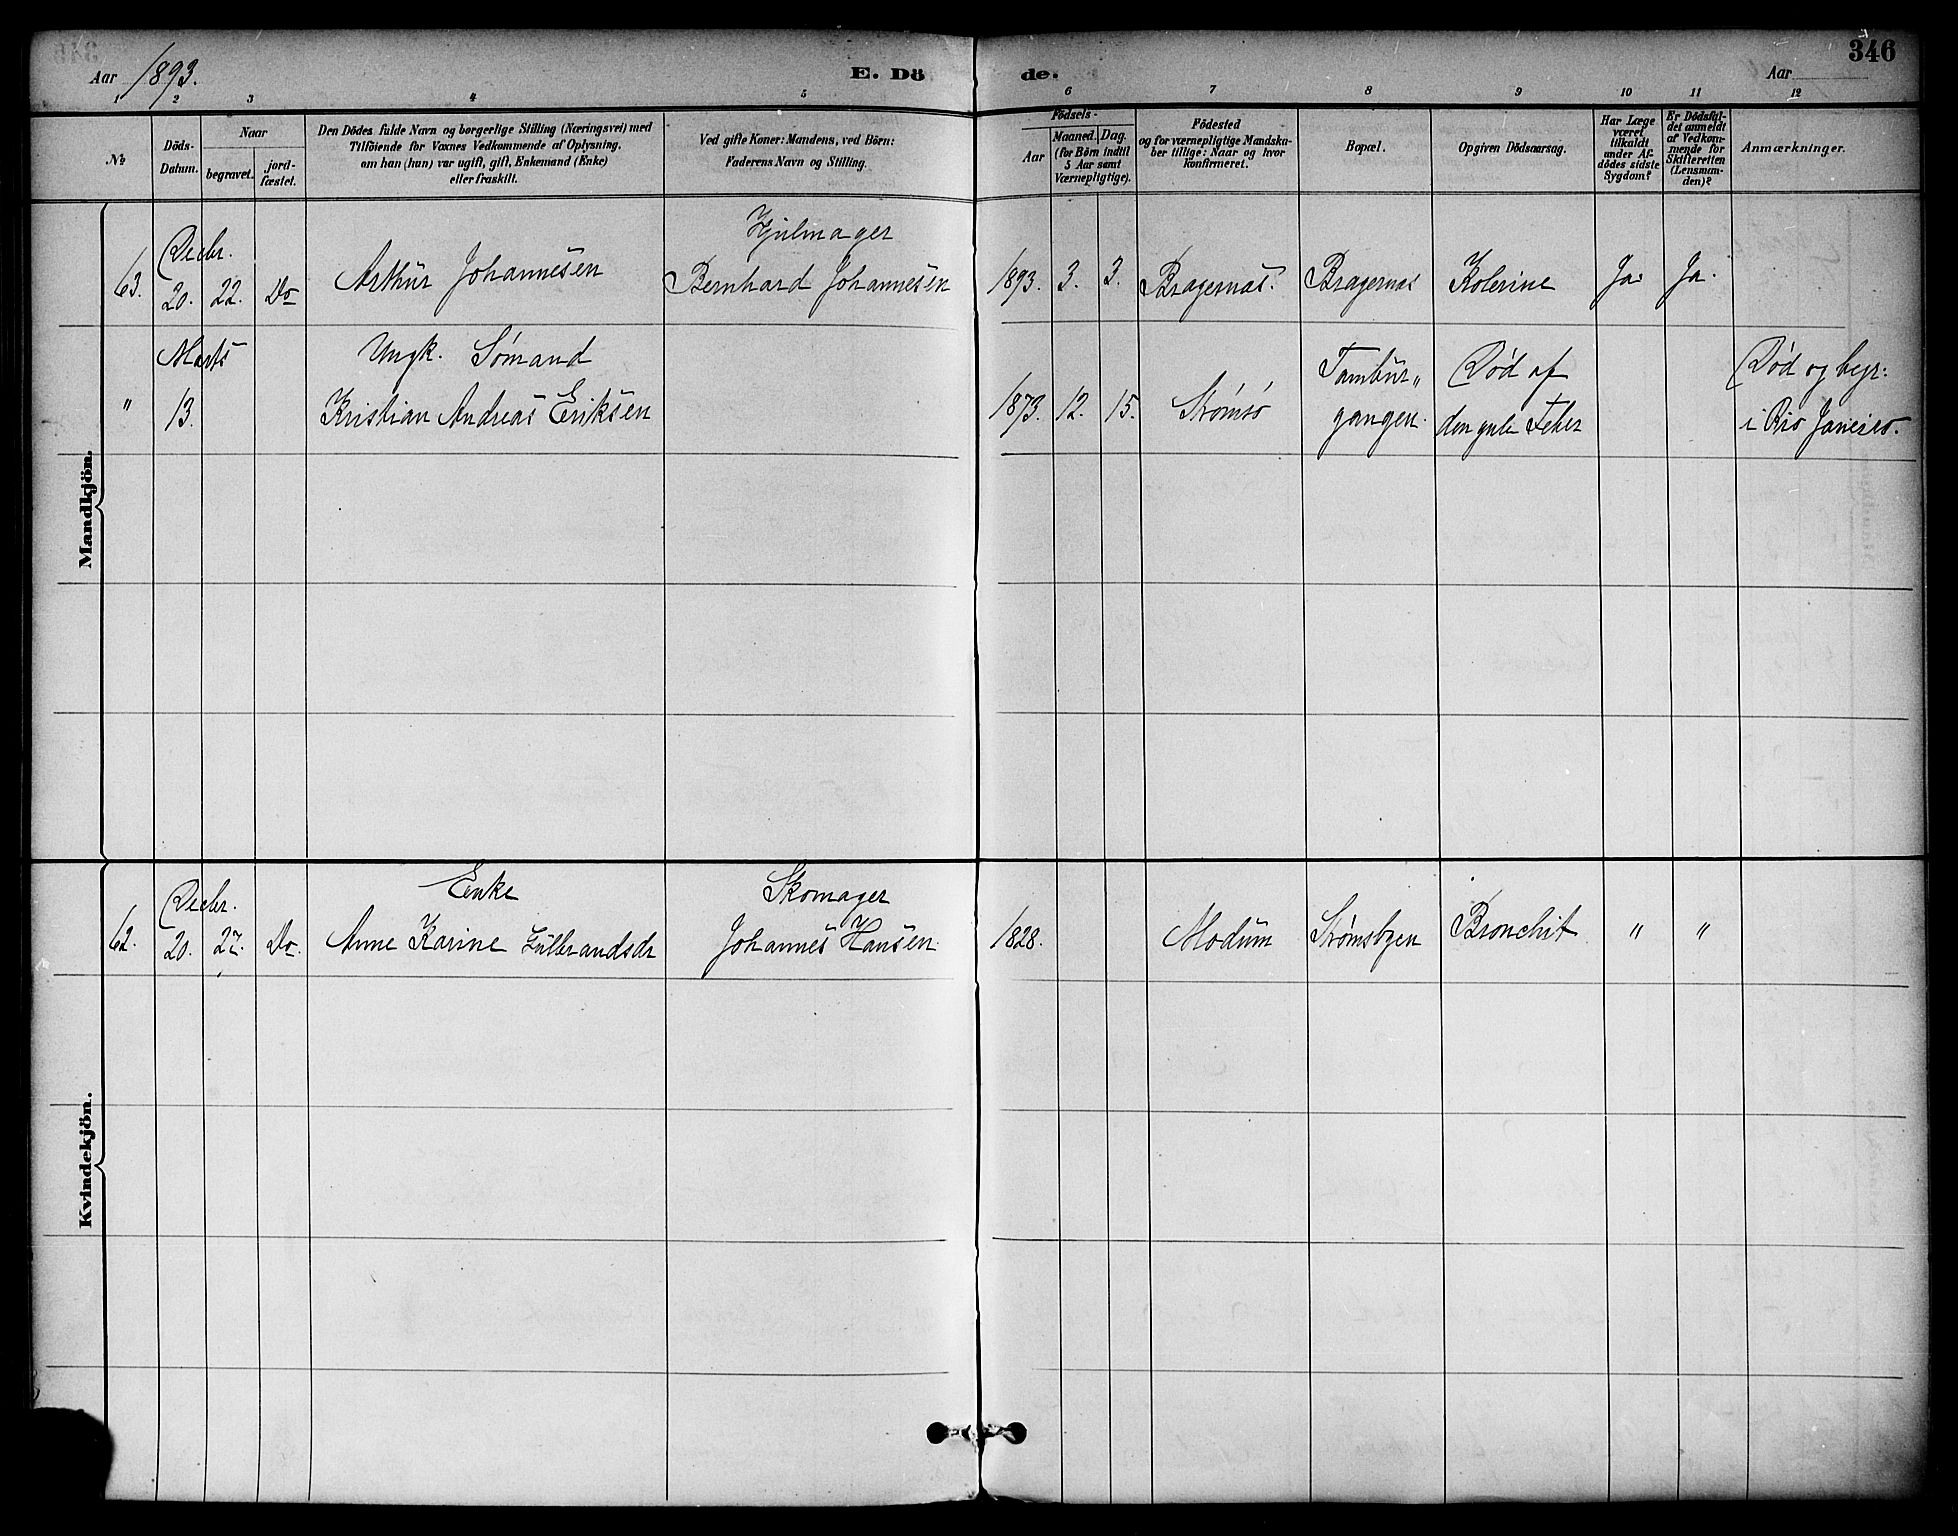 346
Aar 1893.
E. Dö
de.
Aar
1 2 3 4 5 6 7 8 9 10 11 12
№
Döds-
Datum.
Naar
begravet.
jord-
fæstet.
Den Dödes fulde Navn og borgerlige Stilling (Næringsvei) med
Tilföiende for Voxnes Vedkommende af Oplysning,
om han (hun) var ugift, gift, Enkemand (Enke)
eller fraskilt.
Ved gifte Koner: Mandens, ved Börn:
Faderens Navn og Stilling.
Födsels-
Aar
Maaned. Dag.
(for Börn indtil
5 Aar samt
Værnepligtige).
Födested
og for værnepligtige Mandska-
ber tillige: Naar og hvor
konfirmeret.
Bopæl.
Opgiven Dödsaarsag.
Har Læge
været
tilkaldt
under Af-
dödes sidste
Sygdom?
Er Dödsfal-
det anmeldt
af Vedkom-
mende for
Skifteretten
(Lensman-
den)?
Anmærkninger.
Mandkjön.
Decbr. Hjulmager
63. 20. 22. Do Arthur Johannesen Bernhard Johannesen 1893. 3. 3. Bragernæs. Bragernæs Kolerine Ja. Ja.
Marts Ungk. Sømand Tambur„ Død af Død og begr:
" 13. Kristian Andreas Eriksen 1873. 12. 15. Strømsø gangen. den gule Feber i Rio Janeiro.
Kvindekjön.
Decbr. Enke Skomager
62. 20. 27. Do. Anne Karine Gulbrandsdr Johannes Hansen 1828. Modum Strømsbyen Bronchit " "